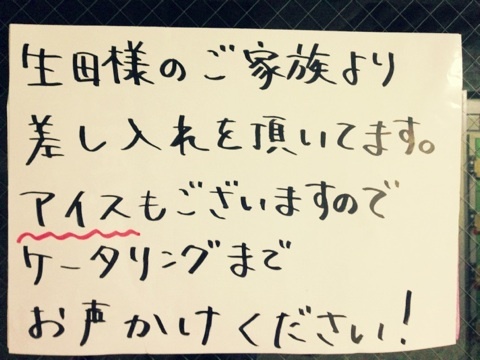 生田様のご家族より
差し入れを頂いてます。
アイスもございますので
ケータリングまで
お声かけください!